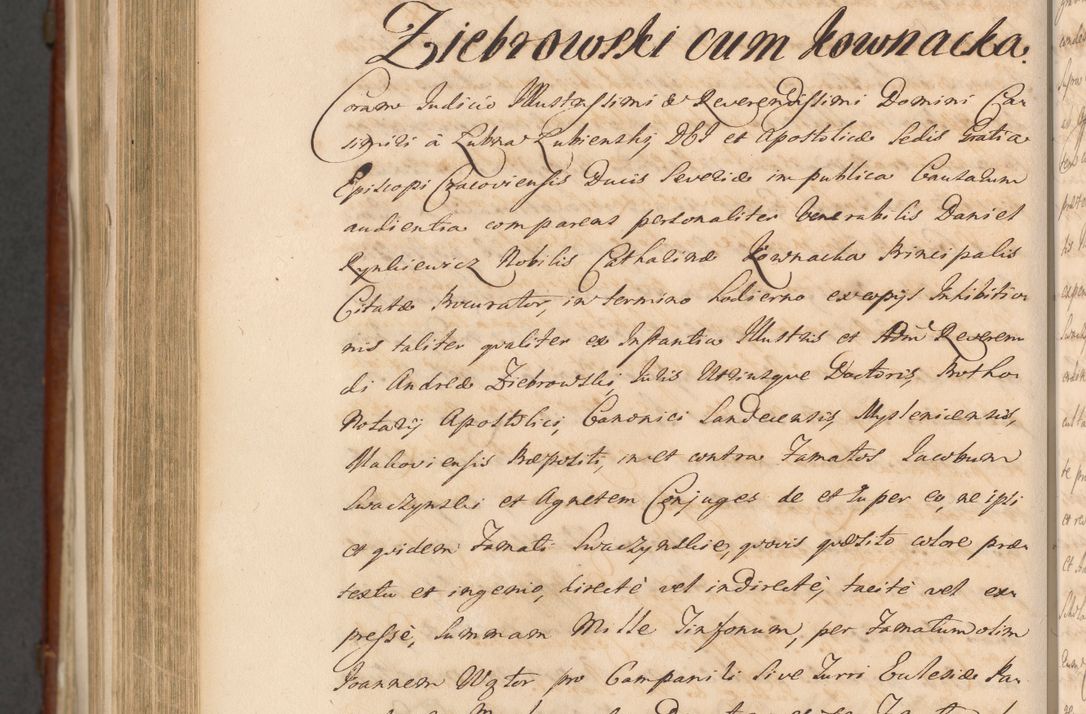 Ziebrowski cum Kownacka.
Coram Judicio Illustrissimi & Reverendissimi Domini Ca-
simiri à Łubna Łubienski, DEI et Apostolicæ Sedis Gratia
Episcopi Cracoviensis Ducis Severiæ in publica Causarum
audientia comparens personaliter Venerabilis Daniel
Rynkiewicz Nobilis Catharinæ Kownacka Principalis
Citatæ Procurator, in termino hodierno ex copijs Inhibitio-
nis taliter qualiter ex Instantia Illustris et Adm Reveren-
di Andreæ Ziebrowski, Juris Utriusque Doctoris, Protho-
Notarij Apostolici, Canonici Sandecensis, Myslenicensis,
Makoviensis Præpositi, in et contra Famatos Jacobum
Swaczynski et Agnetem Conjuges de et super eo, ne ipsi
et quidem Famati Swaczynskie, quovis quæsito colore præ-
textu et ingenio, directè vel indirectè, tacitè vel ex-
pressè, Summam Mille Tinfonum, per Famatum olim
Joannem Wątor pro Campanili sive Turri Ecclesiæ Pa-